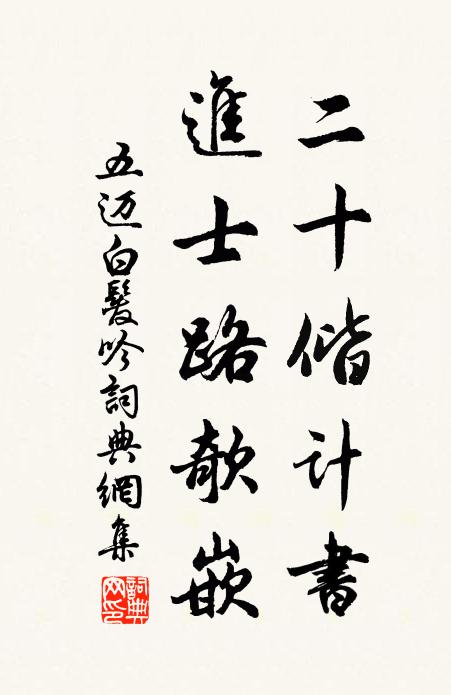 二十偕計書
進士路欹嵌
五迈白髮吟詞典網集
詞典网印